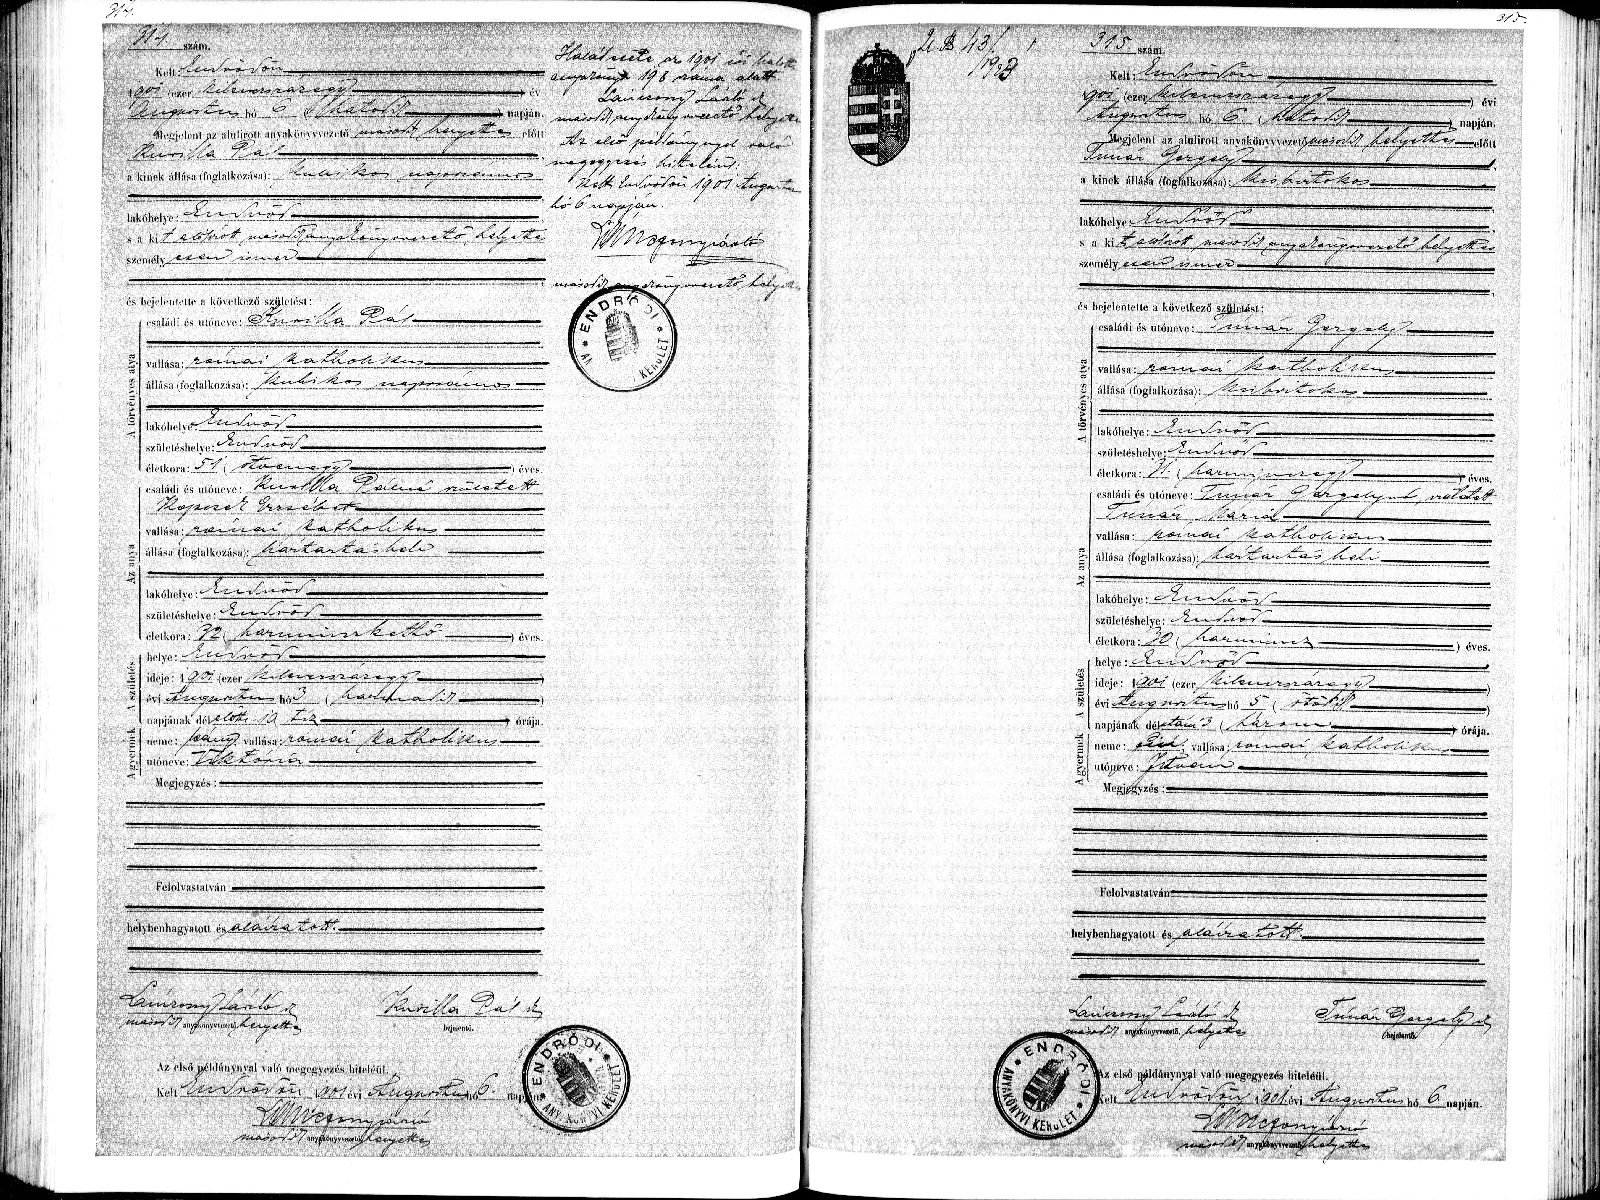 314.
314 szám.
Kelt: Endrődön
1901 (ezer kilenczszázegy) év
Augusztus hó 6 (hatodik) napján.
Megjelent az alulirott anyakönyvvezető második helyettes előtt
Kurilla Pál
a kinek állása (foglalkozása): kubikos napszámos
lakóhelye: Endrőd
s a kit alólirott, második anyakönyvvezető helyettes
személyesen ismer
és bejelentette a következő születést:
A törvényes atya
családi és utóneve: Kurilla Pál
vallása: római katholikus
állása (foglalkozása): kubikos napszámos
lakóhelye: Endrőd
születéshelye: Endrőd
életkora: 51 (ötvenegy) éves.
Az anya
családi és utóneve: Kurilla Pálné született
Erzsébet
vallása: római katholikus
állása (foglalkozása): háztartásbeli
lakóhelye: Endrőd
születéshelye: Endrőd
életkora: 32 (harminczkettő) éves.
A születés
helye: Endrőd
ideje: 1901 (ezer kilenczszázegy)
évi Augusztus hó 3 (harmadik)
napjának délelőtt 10 tiz órája.
A gyermek
neme: leány vallása: római katholikus
utóneve: Viktória
Megjegyzés:
Felolvastatván
helybenhagyatott és aláiratott.
Lánczony László
második anyakönyvvezető helyettes
Kurilla Pál
bejelentő.
Az első példánynyal való megegyezés hiteléül.
Kelt Endrődön 1901 évi Augusztus hó 6 napján.
második anyakönyvvezető helyettes
ENDRŐDI ANYAKÖNYVI KERÜLET
Halál esete az 1901 évi halotti
anyakönyv 198 száma alatt.
Lánczony László
második anyakönyvvezető helyettes
Az első példánynyal való
megegyezés hiteléül.
Kelt Endrődön 1901 Augusztus
hó 6 napján.
második anyakönyvvezető helyettes
ENDRŐDI KERÜLET
315.
431
315 szám.
Kelt: Endrődön
1901 (ezer kilenczszázegy) évi
Augusztus hó 6 (hatodik) napján.
Megjelent az alulirott anyakönyvvezető második helyettes előtt
Timár Gergely
a kinek állása (foglalkozása): kisbirtokos
lakóhelye: Endrőd
s a kit alólirott második anyakönyvvezető helyettes
személyesen ismer
és bejelentette a következő születést:
A törvényes atya
családi és utóneve: Timár Gergely
vallása: római katholikus
állása (foglalkozása): kisbirtokos
lakóhelye: Endrőd
születéshelye: Endrőd
életkora: 31 (harminczegy) éves.
Az anya
családi és utóneve: Timár Gergelyné született
Timár Mária
vallása: római katholikus
állása (foglalkozása): háztartásbeli
lakóhelye: Endrőd
születéshelye: Endrőd
életkora: 30 (harmincz) éves.
A születés
helye: Endrőd
ideje: 1901 (ezer kilenczszázegy)
évi Augusztus hó 5 (ötödik)
napjának délutáni 3 (három) órája.
A gyermek
neme: fiú, vallása: római katholikus
utóneve: István
Megjegyzés:
Felolvastatván
helybenhagyatott és aláiratott.
Lánczony László
második anyakönyvvezető, helyettes
Timár Gergely
bejelentő.
Az első példánynyal való megegyezés hiteléül.
Kelt Endrődön 1901 évi Augusztus hó 6 napján.
második anyakönyvvezető helyettes
ENDRŐDI ANYAKÖNYVI KERÜLET